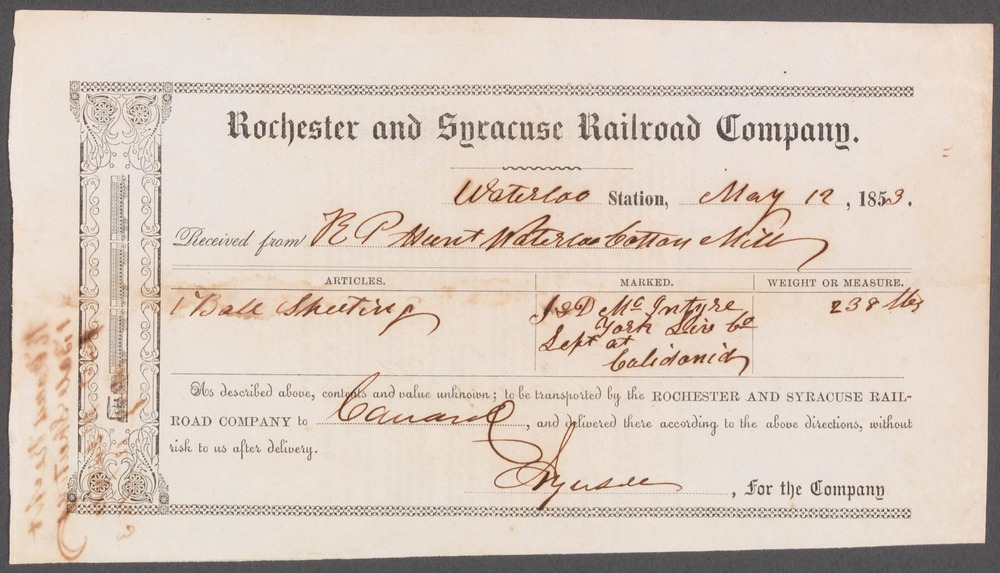 Rochester and Syracuse Railroad Company.
Waterloo Station, May 12, 1853.
Received from R P Hunt Waterloo Cotton Mill
ARTICLES. MARKED. WEIGHT OR MEASURE.
1 Bale Sheeting J & D McIntyre 238 lbs
York Livi Co
Left at
Calidonia
As described above, contents and value unknown; to be transported by the ROCHESTER AND SYRACUSE RAIL-
ROAD COMPANY to , and delivered there according to the above directions, without
risk to us after delivery.
, For the Company